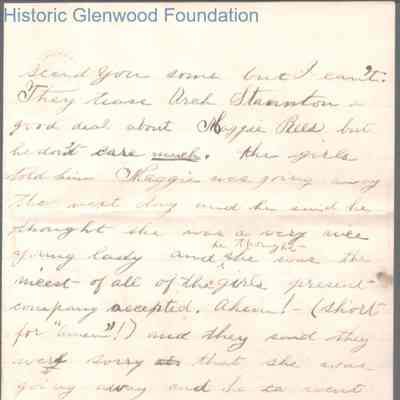 Historic Glenwood Foundation
send you some but I can't.
They tease Arch Staunton a
good deal about Maggie Reed but
he don't care much. the girls
told him Maggie was going away
the next day and he said he
thought she was a very nice
young lady and he thought she was the
nicest of all of the girls present
company accepted. Ahem! - (short
for "amen"!) and they said they
were sorry that she was
going away and he